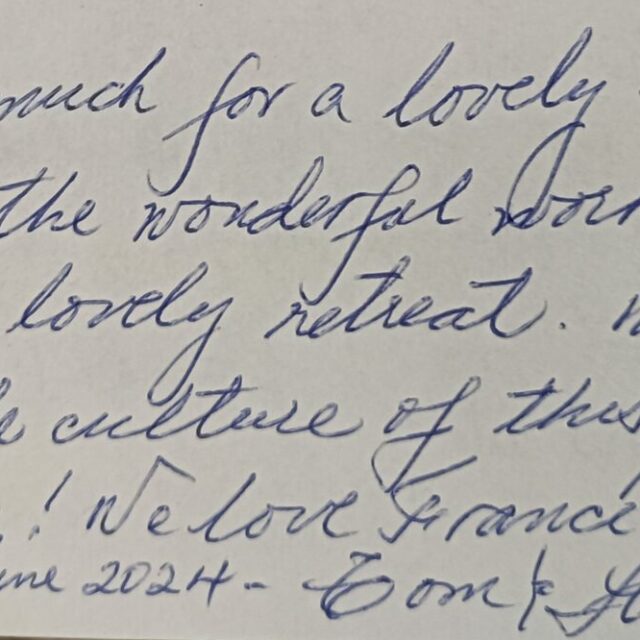 much for a lovely
the wonderful
lovely retreat.
culture of this
! We love France
June 2024 - Tom &